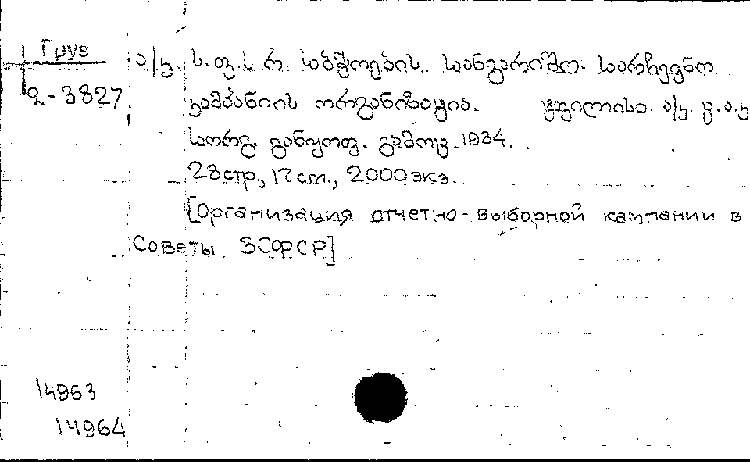 Груз
2-3827
ა/კ. ს. ფ. ს. რ. საბჭოების. საანგარიშო. საარჩევნო
კამპანიის ორგანიზაცია. ტფილისი. ა/კ. ც.ა.კ
საორგ. განყოფ. გამოც. 1934.
28 стр., 17 cm., 2000 экз.
[Организация отчетно-выборной кампании в
Советы ЗСФСР]
14963
14964